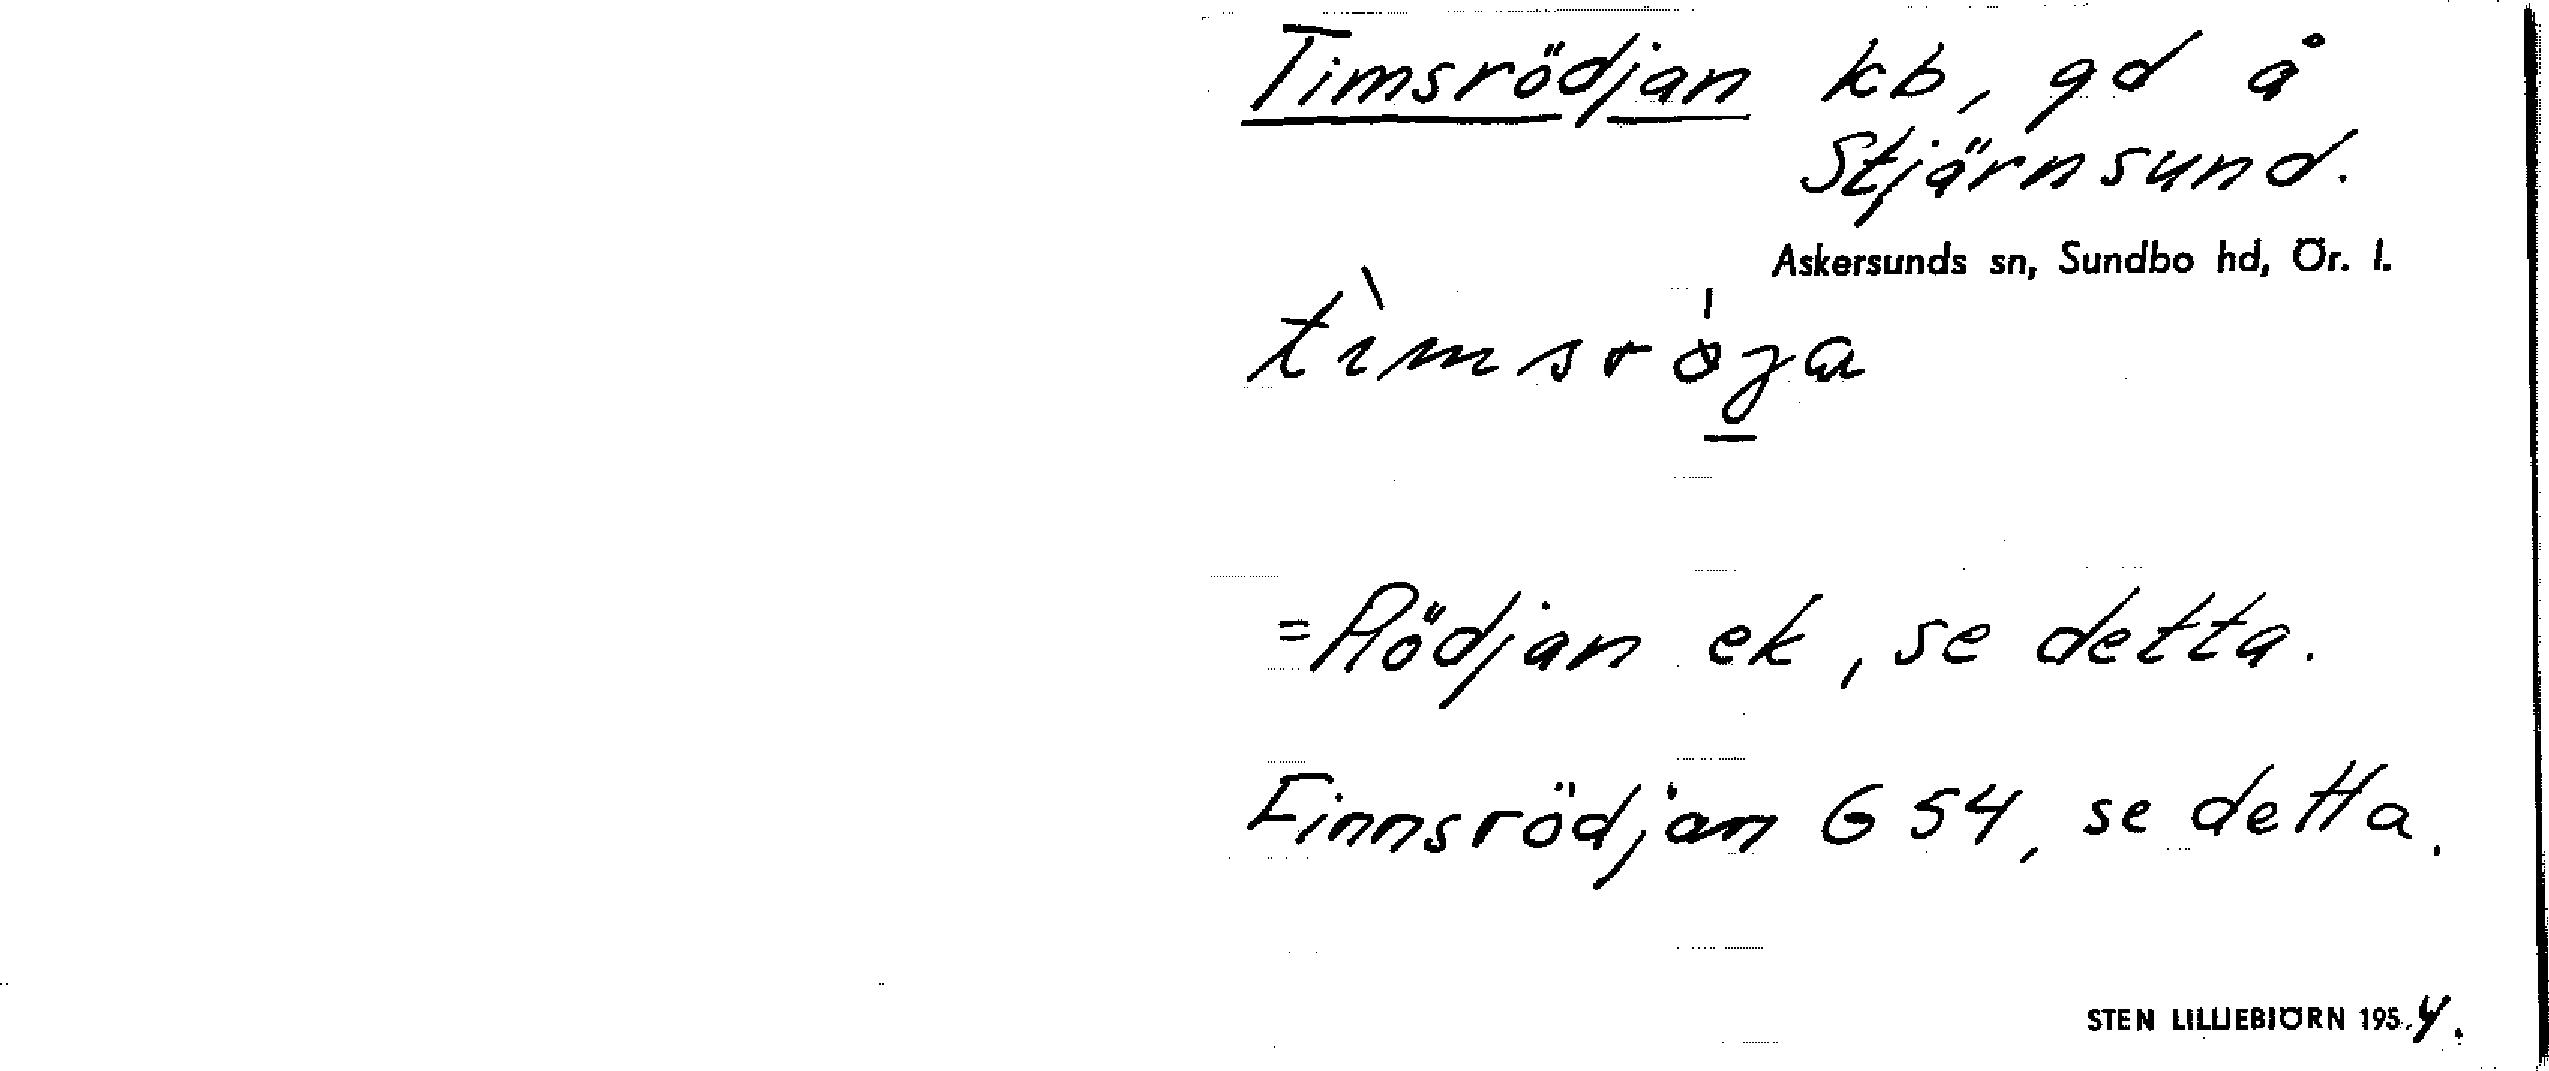 Timsrödjan kb, gd å
Stjärnsund.
Askersunds sn, Sundbo hd, Ör. l.
= Rödjan ek, se detta.
Finnsrödjan G 54, se detta.
STEN LILLIEBJÖRN 1954.